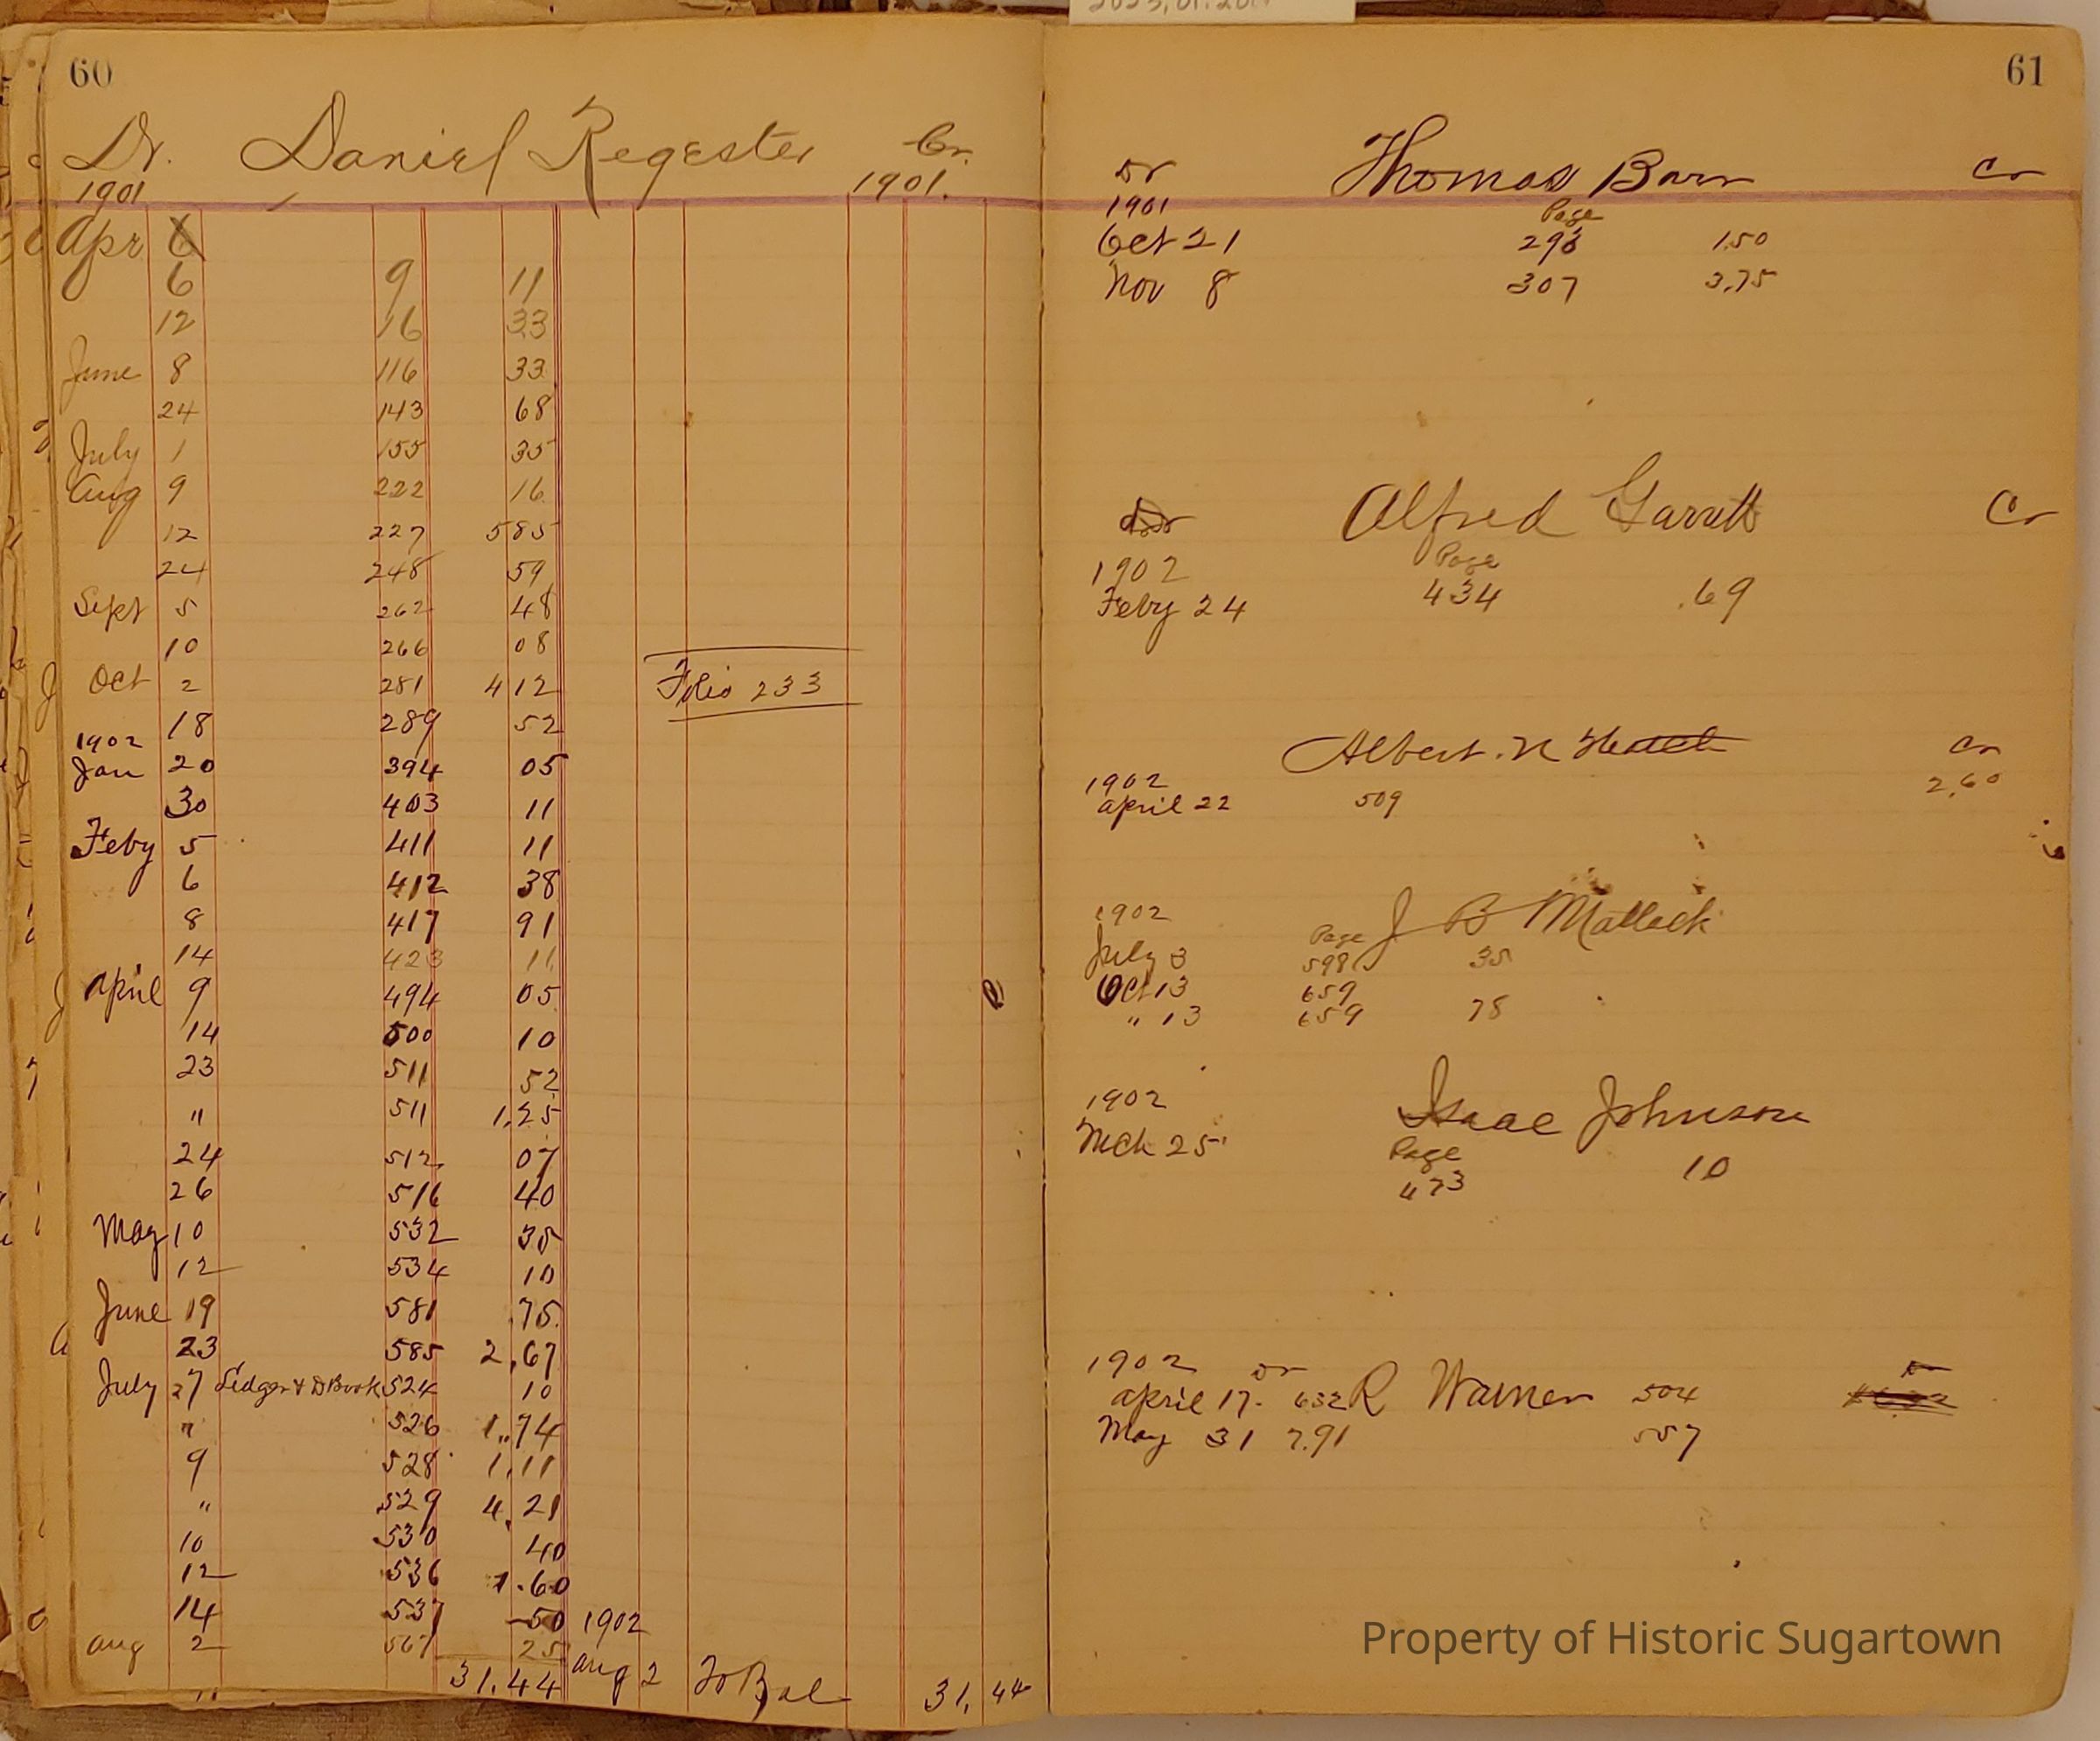 60
Dr. Daniel Regester Cr.
1901 1901.
Apr 6
6 9 11
12 16 33
June 8 116 33
24 143 68
July 1 155 35
Aug 9 222 16
12 227 585
24 248 59
Sept 5 262 48
10 266 08
Oct 2 281 412 Folio 233
18 289 52
1902
Jan 20 394 05
30 403 11
Feby 5 411 11
6 412 38
8 417 91
14 423 11
April 9 494 05
14 500 10
23 511 52
" 511 1,25
24 512 07
26 516 40
May 10 532 35
12 534 10
June 19 581 .75
23 585 2,67
July 7 Ledger & D Book 524 10
" 526 1.,74
9 528 1,11
" 529 4,21
10 530 40
12 536 1.60
14 537 50 1902
Aug 2 567 25
31.44 Aug 2 To Bal 31,44
61
Dr Thomas Barr Cr
1901 Page
Oct 21 1.50
Nov 8 307 3,75
Dr Alfred Garrett Cr
1902 Page
Feby 24 434 .69
Albert. N Cr
1902 2,60
April 22 509
1902 J B Matlack
Page
July 3 598 35
Oct 13 659
" 13 659 78
1902 Isaac Johnson
Mch 25 Page
473 10
1902 Dr Dr
April 17. 632 R Warner 504
May 31 7.91 557
Property of Historic Sugartown